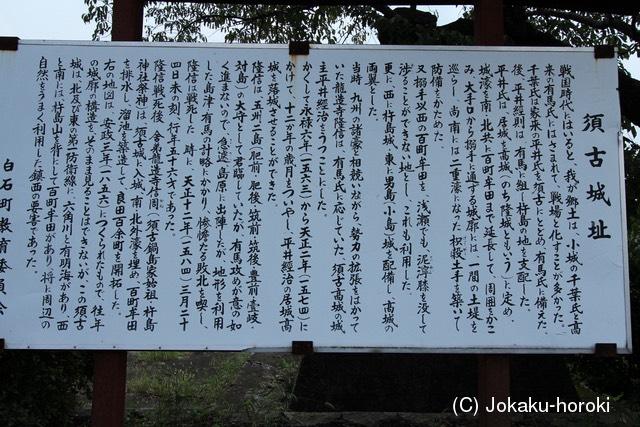 須古城址
戦国時代にはいると、我が郷土は、小城の千葉氏と高
来の有馬氏にはさまれて、戦場と化すことが多かった。
千葉氏は家来の平井氏を須古にとどめ、有馬氏に備えた。
後、平井経則は、有馬に組し杵島の地を支配した。
平井氏は、居城を高城(のち隆城ともいう)に定め、
城濠を南、北、姓に百町牟田まで延長して、周囲をかこ
み、大手口から搦手に通ずる城廓には、一間の土堤を
巡らし、尚、南には二重濠になった枳殻土手を築いて
防備をかためた。
又、搦手以西の百町牟田を、浅瀬でも、泥濘膝を没して
渉ることができない地とし、これも利用した。
更に西に杵島城、東に男島、小島の城を配備し、高城の
両翼とした。
当時、九州の諸豪が相競い、勢力の拡張をはかって
いた龍造寺隆信は、有馬氏に応じていた、須古高城の城
主平井経治をうつことにした。
かくして永禄六年(一五六三)から天正二年(一五七四)に
かけて、十二か年の歳月をついやし、平井経治の居城高
城を落城させることができた。
隆信は、五州二島(肥前、肥後、筑前、筑後、豊前、壱岐
対島)の太守として君臨していたが、有馬攻めが意の如
く進まないので、急遽、島原に出陣したが、地形を利用
した島津、有馬の計略にかかり、惨憺たる敗北を喫し、
隆信は戦死した。時に、天正十二年(一五八四)三月二十
四日未の刻、行年五十六才であった。
隆信戦死後、舎弟龍造寺信周(須古鍋島家始祖、杵島
神社祭神)は、須古城に入城、南、北外濠を埋め、百町牟田
を排水し、溜池を築造して、良田百余町を開拓した。
右の地図は、安政三年(一八五六)につくられたもので、往年
の城廓の構造を、そのまま見ることはできないが、この須古
城は、北及び東の第一防衛線に、六角川と有明海があり、西
と南には杵島山を背にして百町牟田があり、将に周辺の
自然をうまく利用した鎮西の要害であった。
白石町教育委員会
(C) Jokaku-horoki